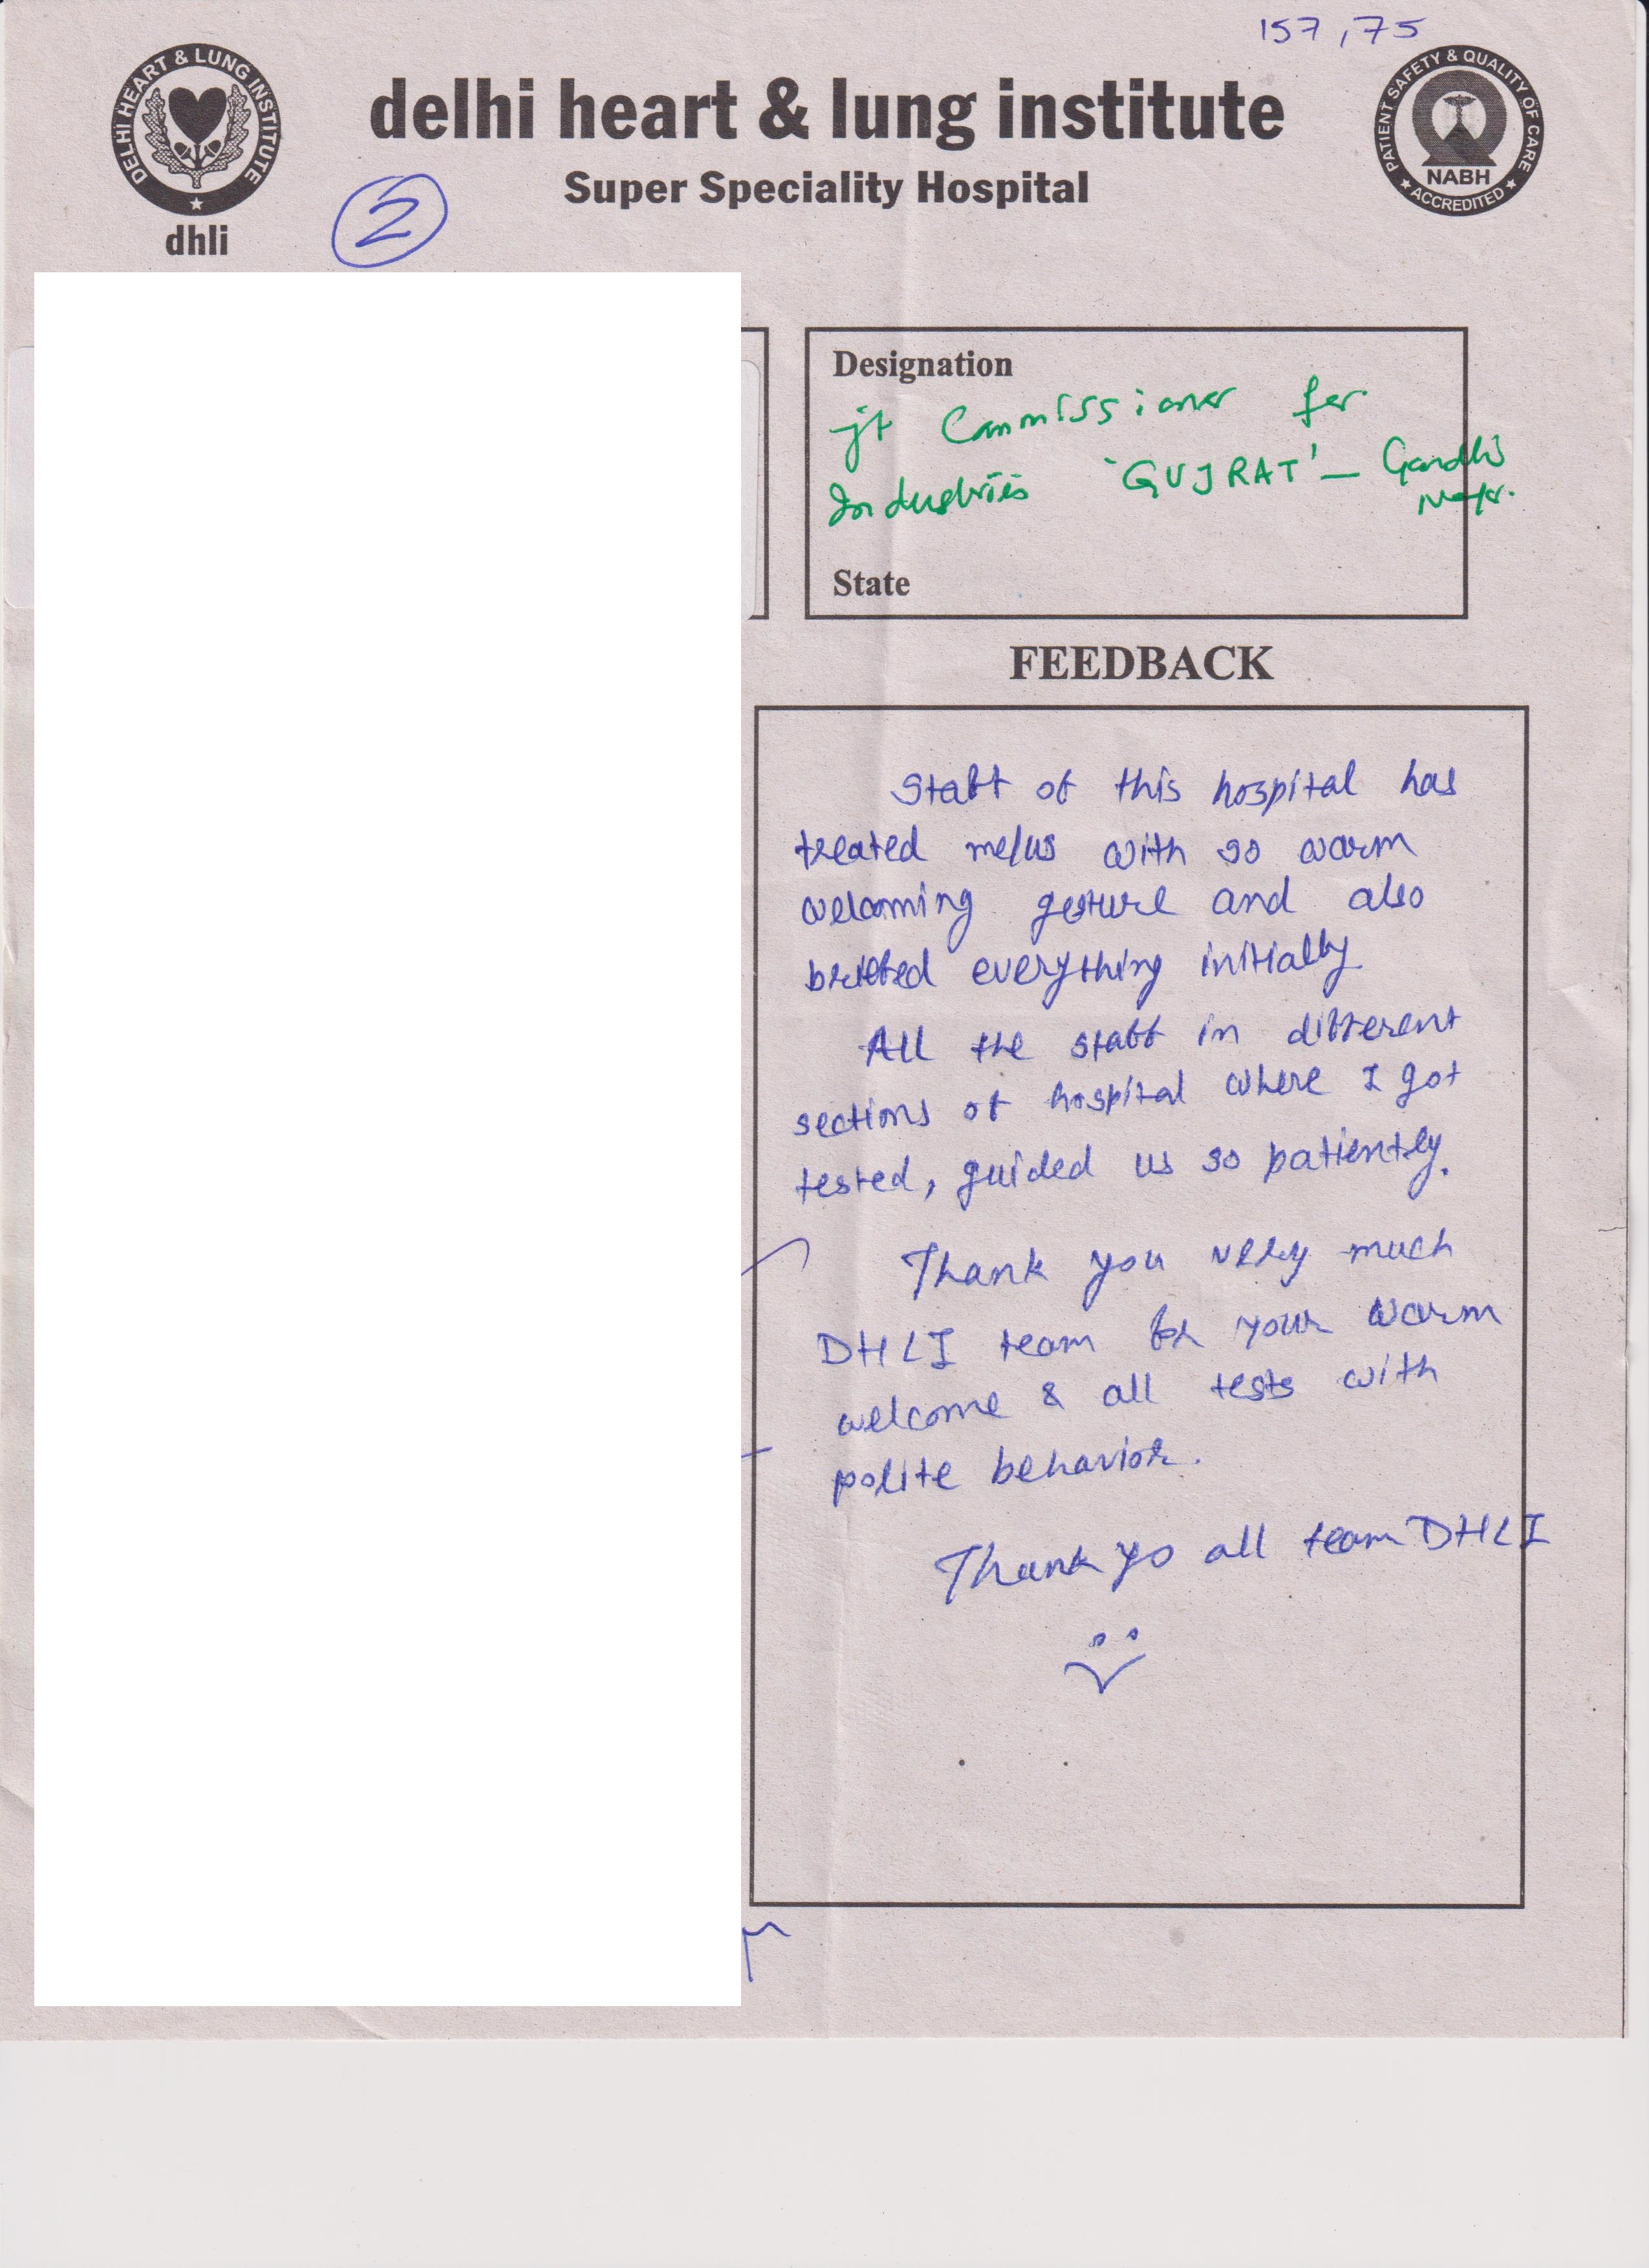 157,75
DELHI HEART & LUNG INSTITUTE
dhli
delhi heart & lung institute
Super Speciality Hospital
PATIENT SAFETY & QUALITY OF CARE
NABH
ACCREDITED
2
Designation
jt Commissioner for
Industries 'GUJRAT' — Gandhi
State
FEEDBACK
Staff of this hospital has
treated me/us with so warm
welcoming gesture and also
briefed everything initially
All the staff in different
sections of hospital where I got
tested, guided us so patiently.
Thank you very much
DHLI team for your warm
welcome & all tests with
polite behavior.
Thank yo all team DHLI